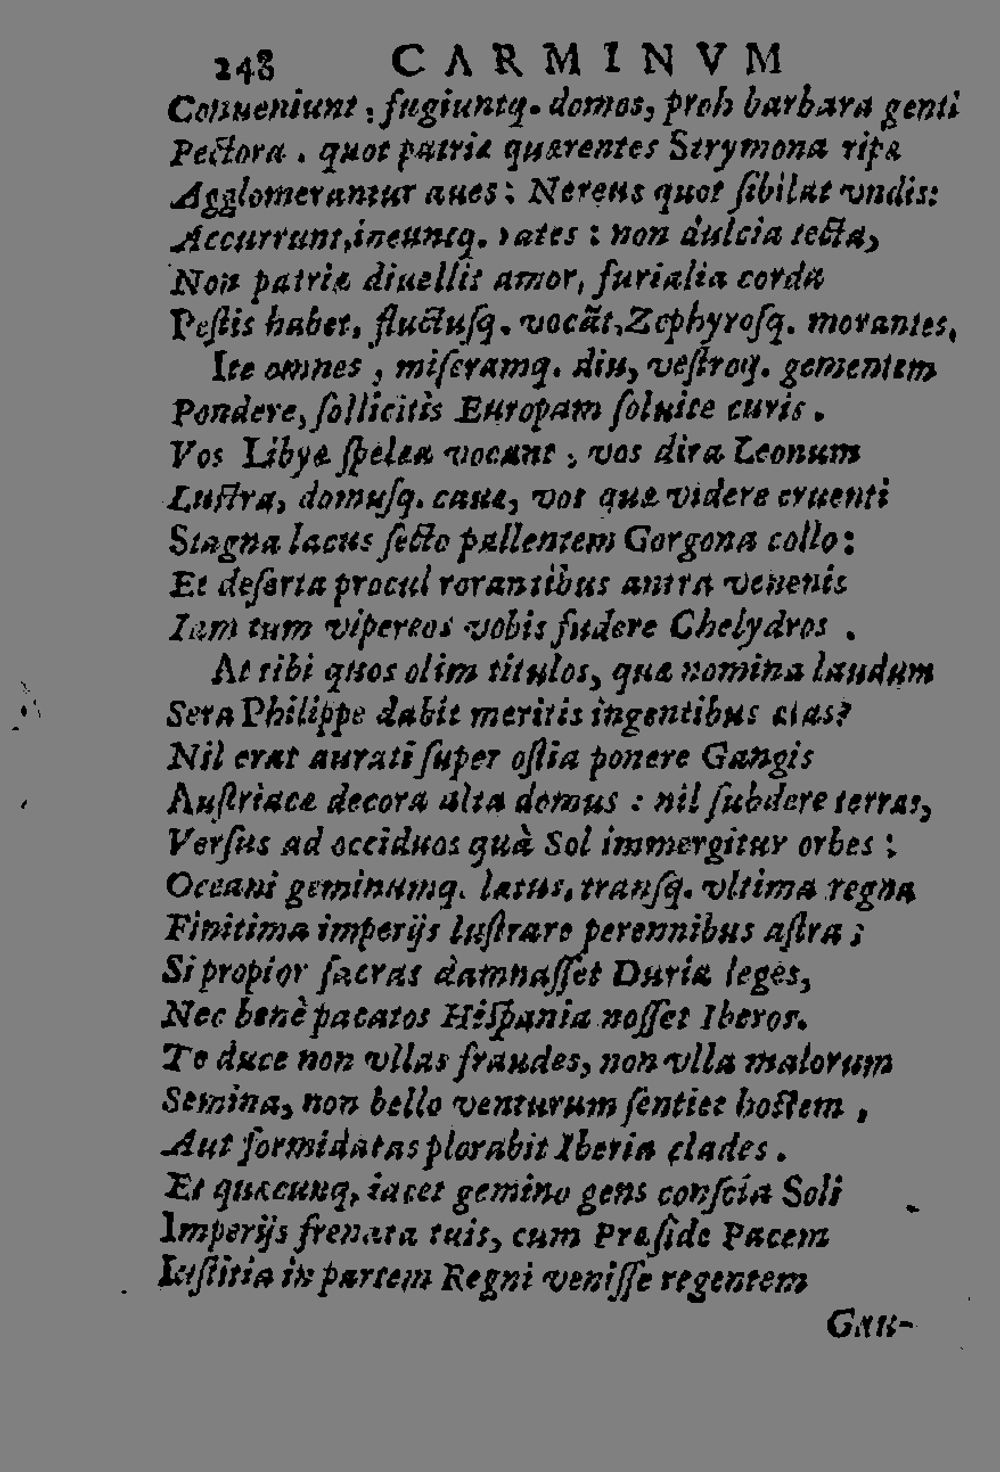 248 CARMINVM
Conueniunt; fugiuntq. domos, proh barbara genti
Pectora. quot patriæ quærentes Strymona ripæ
Agglomerantur aues: Nereus quot sibilat vndis:
Accurrunt, ineuntq. rates: non dulcia tecta,
Non patriæ diuellit amor, furialia corda
Pestis habet, fluctusq. vocãt, Zephyrosq. morantes.
Ite omnes, miseramq. diu, vestroq. gementem
Pondere, sollicitis Europam soluite curis.
Vos Libyæ spelæa vocant; vos dira Leonum
Lustra, domusq. cauæ, vos quæ videre cruenti
Stagna lacus secto pallentem Gorgona collo:
Et deserta procul rorantibus antra venenis
Iam tum vipereos vobis fudere Chelydros.
At tibi quos olim titulos, quæ nomina laudum
Sera Philippe dabit meritis ingentibus ætas?
Nil erat aurati super ostia ponere Gangis
Austriacæ decora alta domus: nil subdere terras,
Versus ad occiduos quà Sol immergitur orbes;
Oceani geminumq. latus, transq. vltima regna
Finitima imperijs lustrare perennibus astra;
Si propior sacras damnasset Duria leges,
Nec benè pacatos Hispania nosset Iberos.
Te duce non vllas fraudes, non vlla malorum
Semina, non bello venturum sentiet hostem,
Aut formidatas plorabit Iberia clades.
Et quæcunq, iacet gemino gens conscia Soli
Imperijs frenata tuis, cum Præside Pacem
Iustitia in partem Regni venisse regentem
Gau-